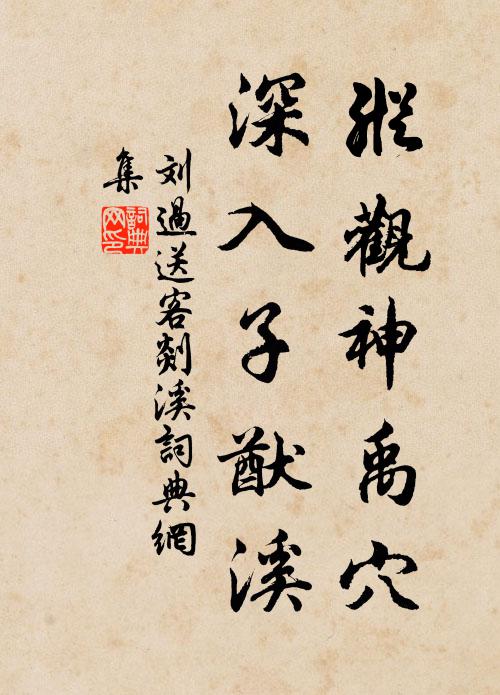 縱觀神禹穴
深入子猷溪
刘過送客剡溪詞典網
集
詞典
网印